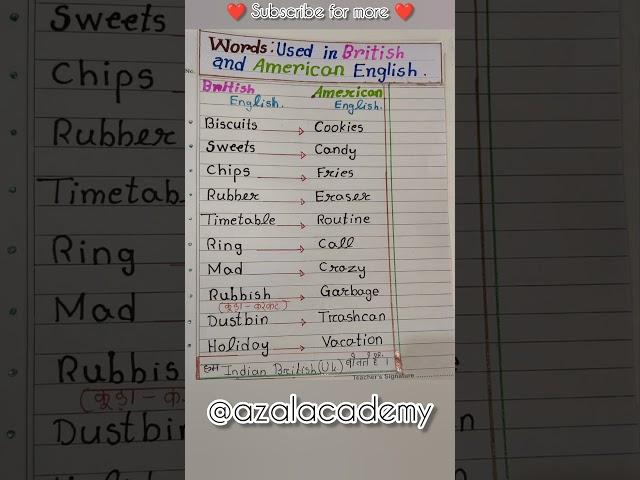 ❤️ Subscribe for more ❤️
Words: Used in British
and American English.
No.
British English. American English.
Biscuits → Cookies
Sweets → Candy
Chips → Fries
Rubber → Eraser
Timetable → Routine
Ring → Call
Mad → Crazy
Rubbish → Garbage
(कूड़ा - करकट)
Dustbin → Trashcan
Holiday → Vacation
हम Indian British (Uk) बोलते है।
Teacher's Signature
@azalacademy
Sweets
Chips
Rubber
Timetab
Ring
Mad
Rubbis
(कूड़ा - क
Dustbi
n